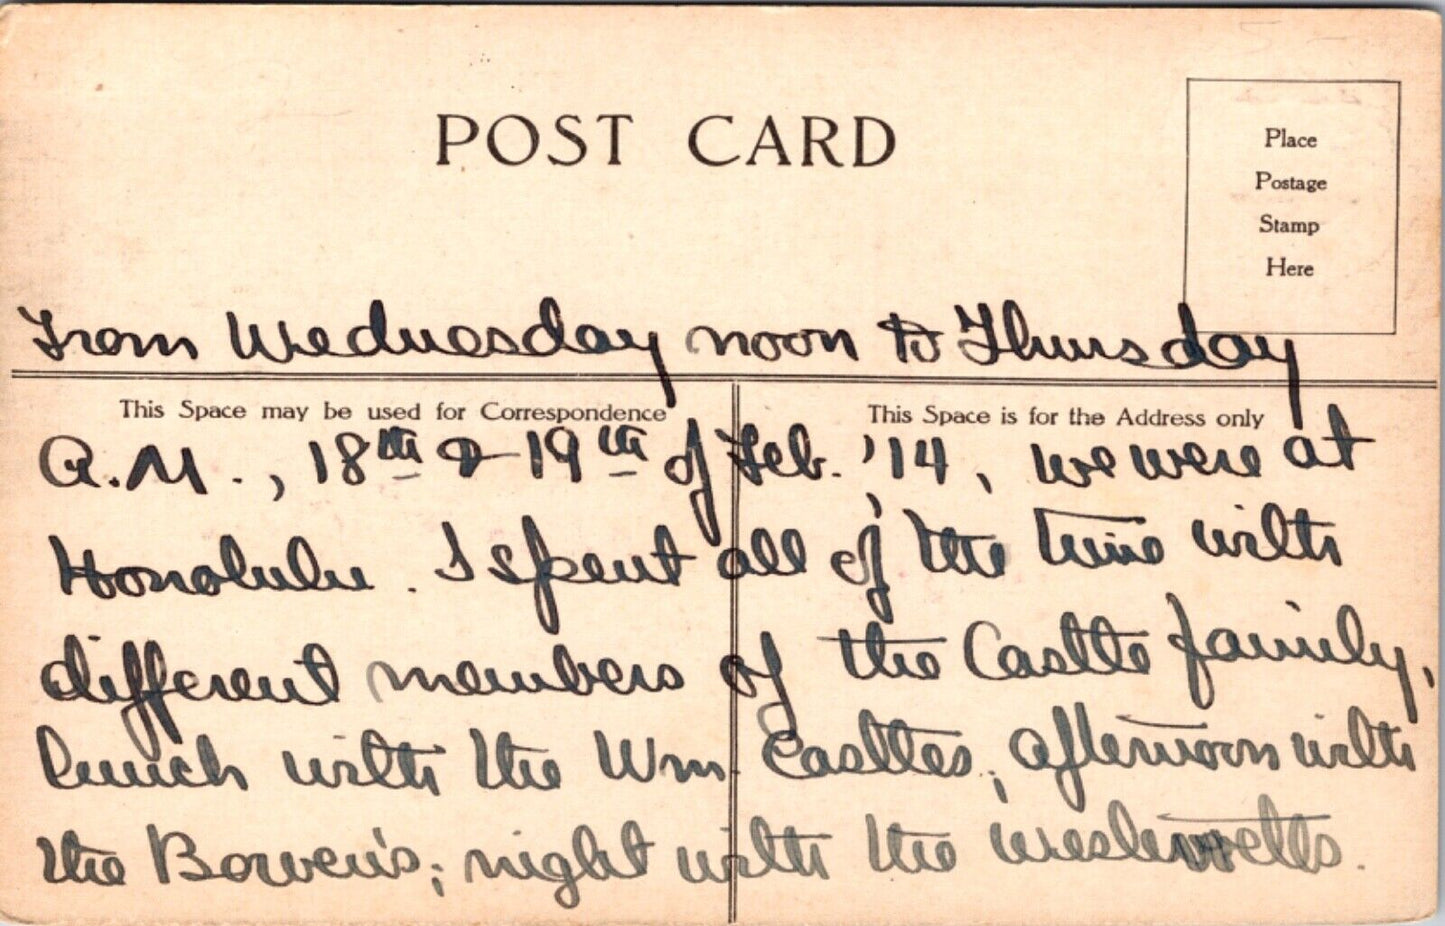 POST CARD
Place
Postage
Stamp
Here
From Wednesday noon to Thursday
This Space may be used for Correspondence
This Space is for the Address only
A.M., 18th & 19th of Feb. '14, we were at
Honolulu. I spent all of the time with
different members of the Castle family,
lunch with the Wm Castles, afternoon with
the Bowen's; night with the